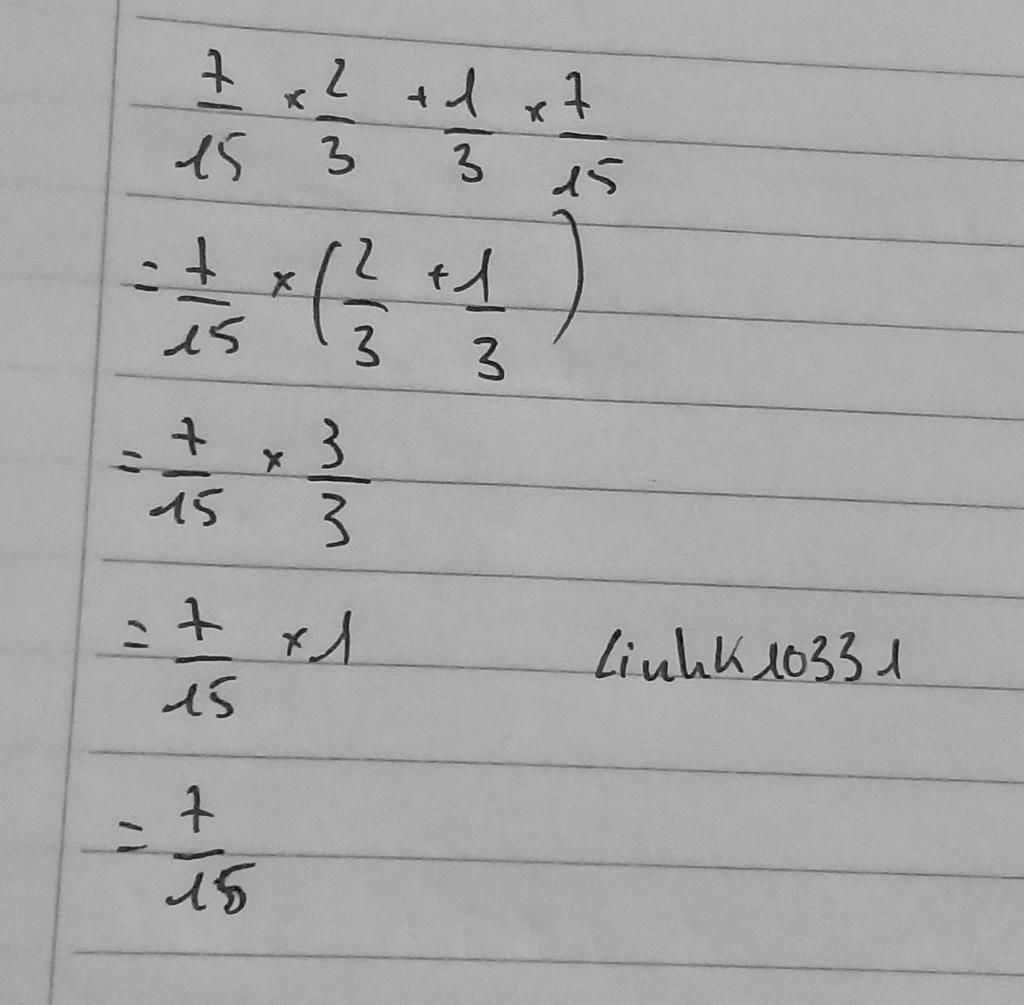 7/15 × 2/3 + 1/3 × 7/15
= 7/15 × (2/3 + 1/3)
= 7/15 × 3/3
= 7/15 × 1
LinhK10331
= 7/15